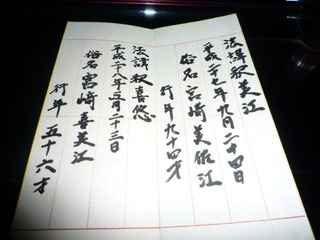 法諱釈美江
平成二十七年九月二十四日
俗名宮﨑美佐江
行年九十四才
法諱釈喜悠
平成二十八年五月二十三日
俗名宮﨑喜美江
行年五十六才